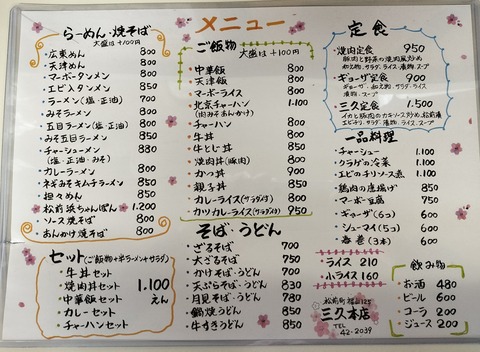 メニュー
らーめん・焼そば
大盛は+100円
・広東めん 800
・天津めん 800
・マーボータンメン 850
・エビ入タンメン 850
・ラーメン(塩・正油) 700
・みそラーメン 800
・五目ラーメン(塩・正油) 850
・みそ五目ラーメン 850
・チャーシューメン 880
(塩・正油・みそ)
・カレーラーメン 800
・ネギみそキムチラーメン 850
・担々めん 850
・松前浜ちゃんぽん 1,200
・ソース焼そば 800
・あんかけ焼そば 800
セット(ご飯物+半ラーメン+サラダ)
・牛丼セット
・焼肉丼セット
・中華飯セット
・カレーセット
・チャーハンセット
1,100えん
ご飯物
大盛は+100円
・中華飯 800
・天津飯 800
・マーボーライス 800
・北京チャーハン 1,100
(肉みそあんかけ)
・チャーハン 800
・牛丼 800
・牛とじ丼 850
・焼肉丼(豚肉) 800
・かつ丼 900
・親子丼 850
・カレーライス(サラダ付) 800
・カツカレーライス(サラダ付) 950
そば・うどん
・ざるそば 700
・大ざるそば 750
・かけそば・うどん 650
・天ぷらそば・うどん 750
・月見そば・うどん 780
・鍋焼うどん 850
・牛すきうどん 850
定食
・焼肉定食 950
豚肉と野菜の焼肉風炒め
和え物、サラダ、ライス、漬物、スープ
・ギョーザ定食 900
ギョーザ、和え物、サラダ、ライス
漬物、スープ
・三久定食 1,500
エビチリ、サラダ、ライス、漬物、スープ
一品料理
・チャーシュー 1,100
・クラゲの冷菜 1,100
・エビのチリソース煮 1,100
・鶏肉の唐揚げ 850
・マーボー豆腐 750
・ギョーザ(6つ) 600
・シューマイ(5つ) 600
・春巻(3本) 600
・ライス 210
・小ライス 160
飲み物
・お酒 480
・ビール 600
・コーラ 200
・ジュース 200
三久本店
TEL
42-2039